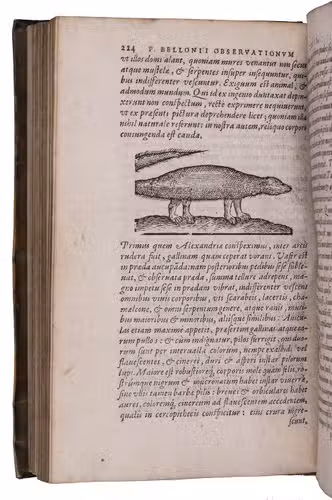 224 P. BELLONII OBSERVATIONVM
vt illos domi alant, quoniam mures venantur non secus
atque mustela, & serpentes insuper insequuntur, quibus
indifferenter vescuntur. Exiguum est animal, &
admodum mundum. Qui id ex ingenio duntaxat depinxerunt
non conspectum, recte exprimere nequiuerunt,
vt ex præsenti pictura deprehendere licet; quoniam illa
nihil naturale referunt: in nostra autem, reliquo corpori
coniungenda est cauda.
Primus quem Alexandriæ conspeximus, inter arcis
rudera fuit, gallinam quam ceperat vorans. Vafer est in
præda aucupāda: nam posterioribus pedibus sese subleuat,
& obseruata præda, summa tellure adrepens, magno
impetu sese in prædam vibrat, indifferenter vescens
omnibus viuis corporibus, vti scarabeis, lacertis, chamæleone,
& omni serpentum genere, atque ranis, muribus
maioribus & minoribus, aliisque similibus. Auiculas
etiam maxime appetit, præsertim gallinas atque earum
pullos: & cùm indignatur, pilos surrigit, qui duorum
sunt per interualla colorum, nempe exalbidi vel
flauescentes, & cinerei, duri & asperi instar pilorum
lupi. Maiore est robustioreque corporis mole quàm felis, rostrumque
nigrum & mucronatum habet instar viuerræ,
sine vlli tamen barbæ pilis: breues & orbiculares habet
aures, coloremque cinereum ad flauescentem accedentem,
qualis in cercopithecis conspicitur: eius crura nigrescunt,